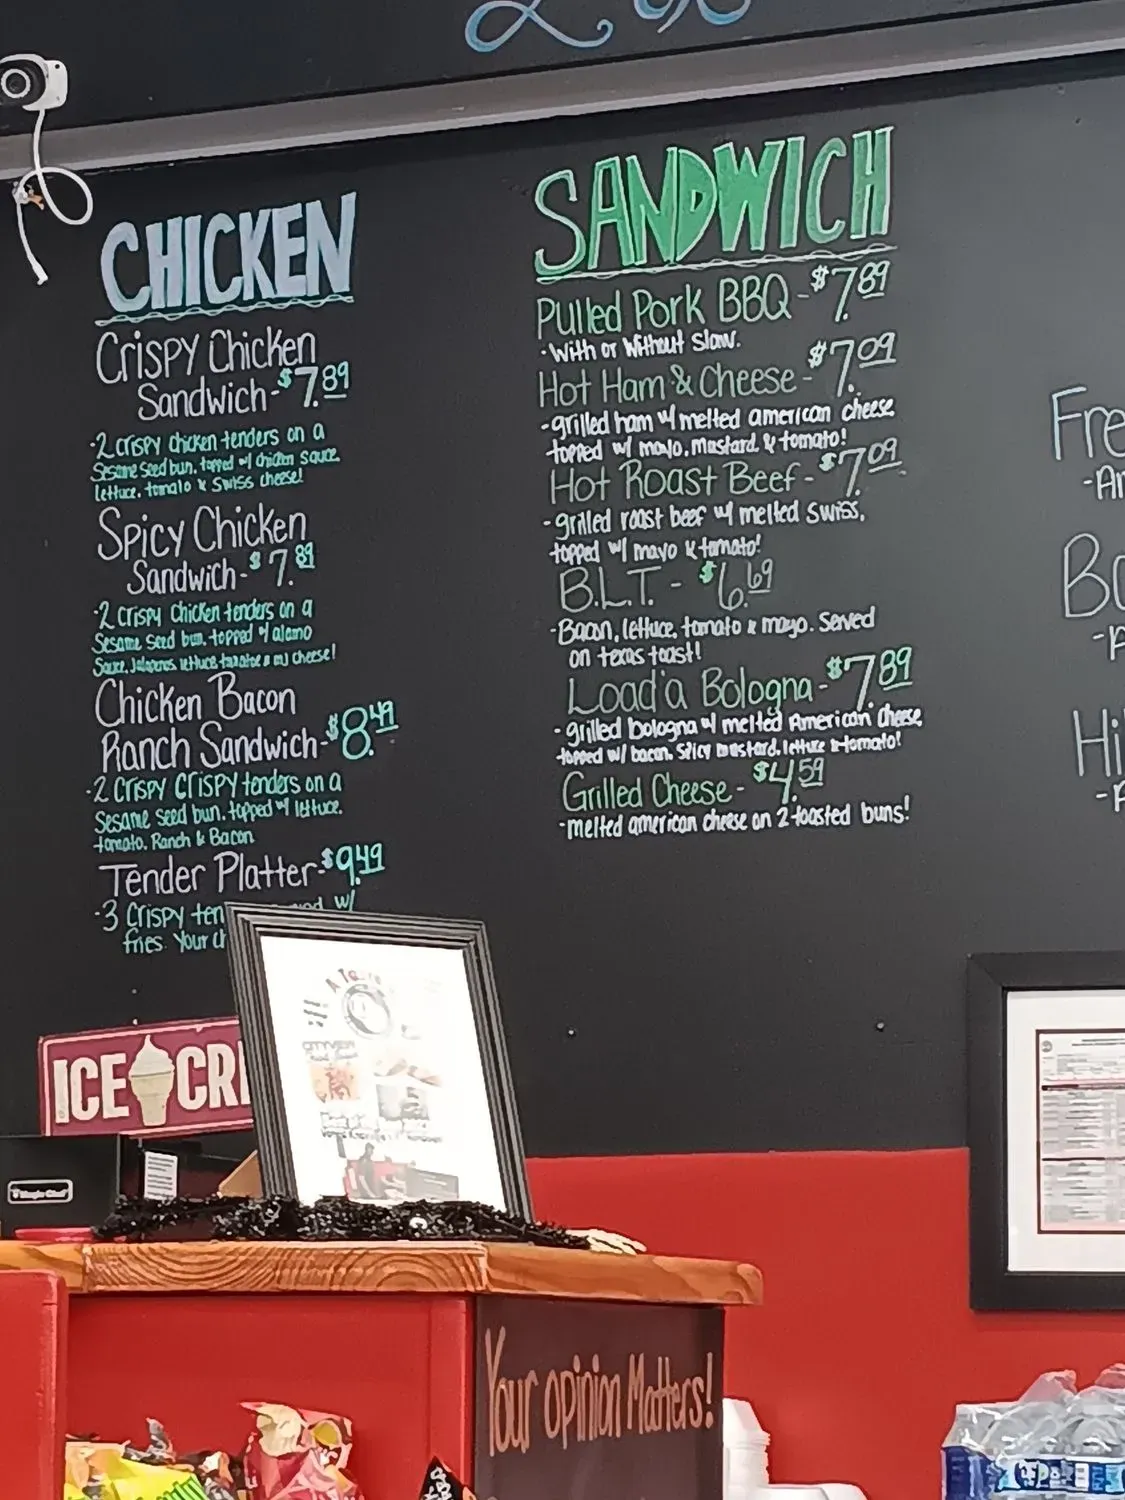 CHICKEN
Crispy Chicken
Sandwich - $7.89
-2 crispy chicken tenders on a
Sesame Seed bun, topped w/ chicken sauce
lettuce, tomato & Swiss cheese!
Spicy Chicken
Sandwich - $7.89
-2 crispy chicken tenders on a
Sesame seed bun, topped w/ alamo
Sauce, Jalapenos, lettuce
cheese!
Chicken Bacon
Ranch Sandwich - $8.49
-2 crispy crispy tenders on a
Sesame seed bun, topped w/ lettuce,
tomato, Ranch & Bacon
Tender Platter - $9.49
-3 Crispy ten w/
fries. Your ch
SANDWICH
Pulled Pork BBQ - $7.89
-With or Without Slaw.
Hot Ham & Cheese - $7.09
-grilled ham w/ melted american cheese
topped w/ mayo, mustard, & tomato!
Hot Roast Beef - $7.09
-grilled roast beef w/ melted Swiss,
topped w/ mayo & tomato!
B.L.T. - $6.69
-Bacon, lettuce, tomato & mayo. Served
on texas toast!
Load'a Bologna - $7.89
-grilled bologna w/ melted American cheese
topped w/ bacon, spicy mustard, lettuce & tomato!
Grilled Cheese - $4.59
-melted american cheese on 2 toasted buns!
Fre
-Ar
Bo
Hi
ICE CR
Magic Chef
Your opinion Matters!